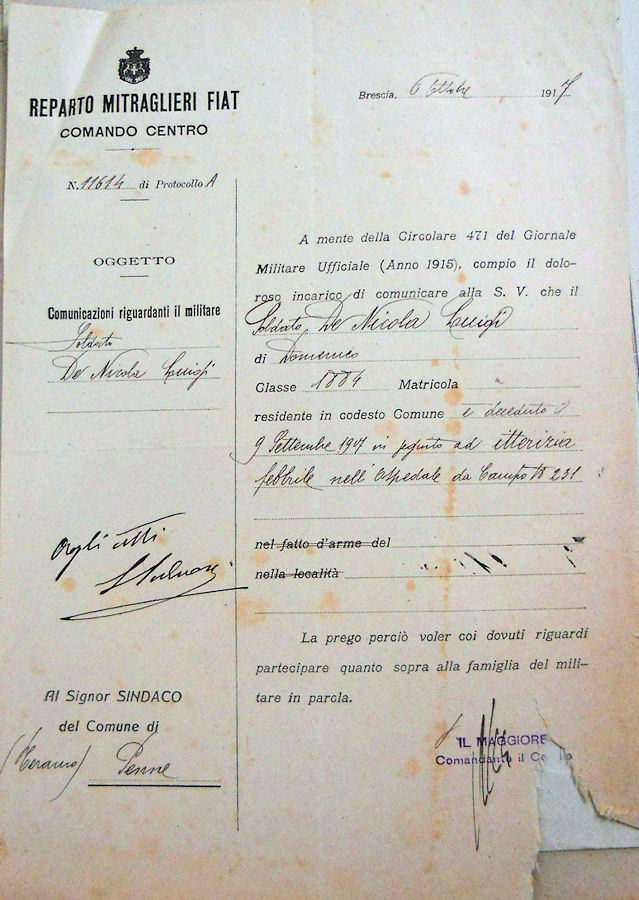 REPARTO MITRAGLIERI FIAT
COMANDO CENTRO
N. 11614 di Protocollo A
OGGETTO
Comunicazioni riguardanti il militare
Soldato
De Nicola Luigi
Agli atti
Al Signor SINDACO
del Comune di
(Teramo) Penne
Brescia, 6 Ottobre 1917
A mente della Circolare 471 del Giornale
Militare Ufficiale (Anno 1915), compio il dolo-
roso incarico di comunicare alla S. V. che il
Soldato De Nicola Luigi
di Domenico
Classe 1884 Matricola "
residente in codesto Comune è deceduto il
9 Settembre 1917 in seguito ad itterizia
febbrile nell'Ospedale da Campo N 231
nel fatto d'arme del
nella località
La prego perciò voler coi dovuti riguardi
partecipare quanto sopra alla famiglia del mili-
tare in parola.
IL MAGGIORE
Comandante il